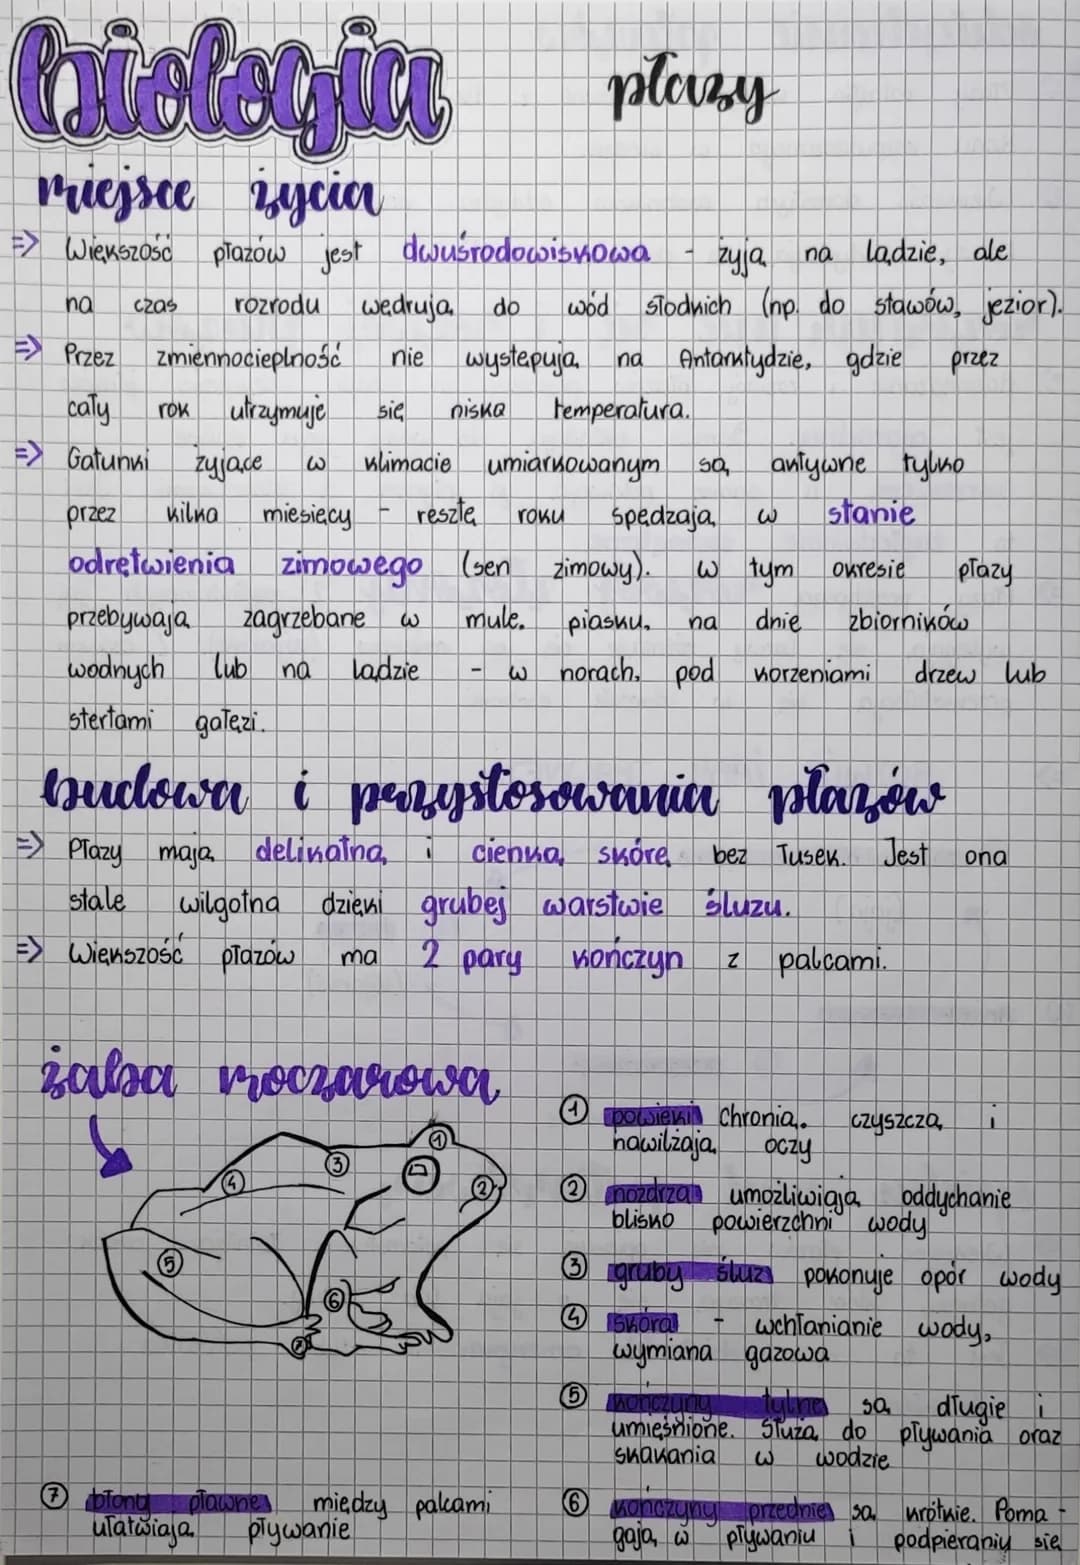 biologia
płazy
miejsce życia
=> Większość płazów jest dwuśrodowiskowa - żyją na lądzie, ale
na czas rozrodu wędrują do wód słodkich (np. do stawów, jezior).
=> Przez zmiennocieplność nie występują na Antarktydzie, gdzie przez
cały rok utrzymuje się niska temperatura.
=> Gatunki żyjące w klimacie umiarkowanym są aktywne tylko
przez kilka miesięcy - resztę roku spędzają w stanie
odrętwienia zimowego (sen zimowy). W tym okresie płazy
przebywają zagrzebane w mule, piasku, na dnie zbiorników
wodnych lub na lądzie - w norach, pod korzeniami drzew lub
stertami gałęzi.
budowa i przystosowania płazów
=> Płazy mają delikatną i cienką skórę bez łusek. Jest ona
stale wilgotna dzięki grubej warstwie śluzu.
=> Większość płazów ma 2 pary kończyn z palcami.
żaba moczarowa
1
2
3
4
5
6
7
① powieki chronią, czyszczą i
nawilżają oczy
② nozdrza umożliwiają oddychanie
blisko powierzchni wody
③ gruby śluz pokonuje opór wody
④ skóra - wchłanianie wody,
wymiana gazowa
⑤ kończyny tylne są długie i
umięśnione. Służą do pływania oraz
skakania w wodzie
⑥ kończyny przednie są krótkie. Poma-
gają w pływaniu i podpieraniu się
⑦ błony pławne między palcami
ułatwiają pływanie